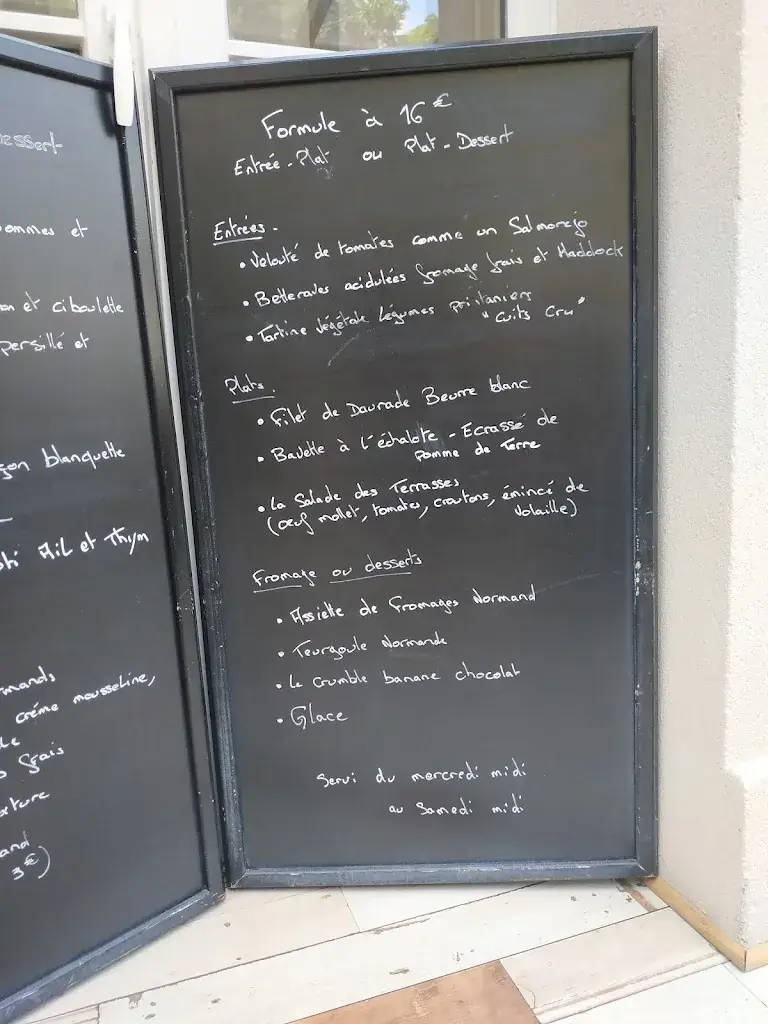 Dessert
ommes et
on et ciboulette
persillé et
çon blanquette
Ail et Thym
mands
crème mousseline,
frais
and
3€)
Formule à 16€
Entrée - Plat ou Plat - Dessert
Entrées.
• Velouté de tomates comme un Salmorejo
• Betteraves acidulées fromage frais et Haddock
• Tartine végétale légumes printaniers
"cuits Cru"
Plats.
• Filet de Daurade Beurre blanc
• Bavette à l'échalote - Ecrassé de
pomme de Terre
• La Salade des Terrasses
(œuf mollet, tomates, croutons, émincé de
Volaille)
Fromage ou desserts
• Assiette de Fromages Normand
• Teurgoule Normande
• Le Crumble banane chocolat
• Glace
Servi du mercredi midi
au Samedi midi